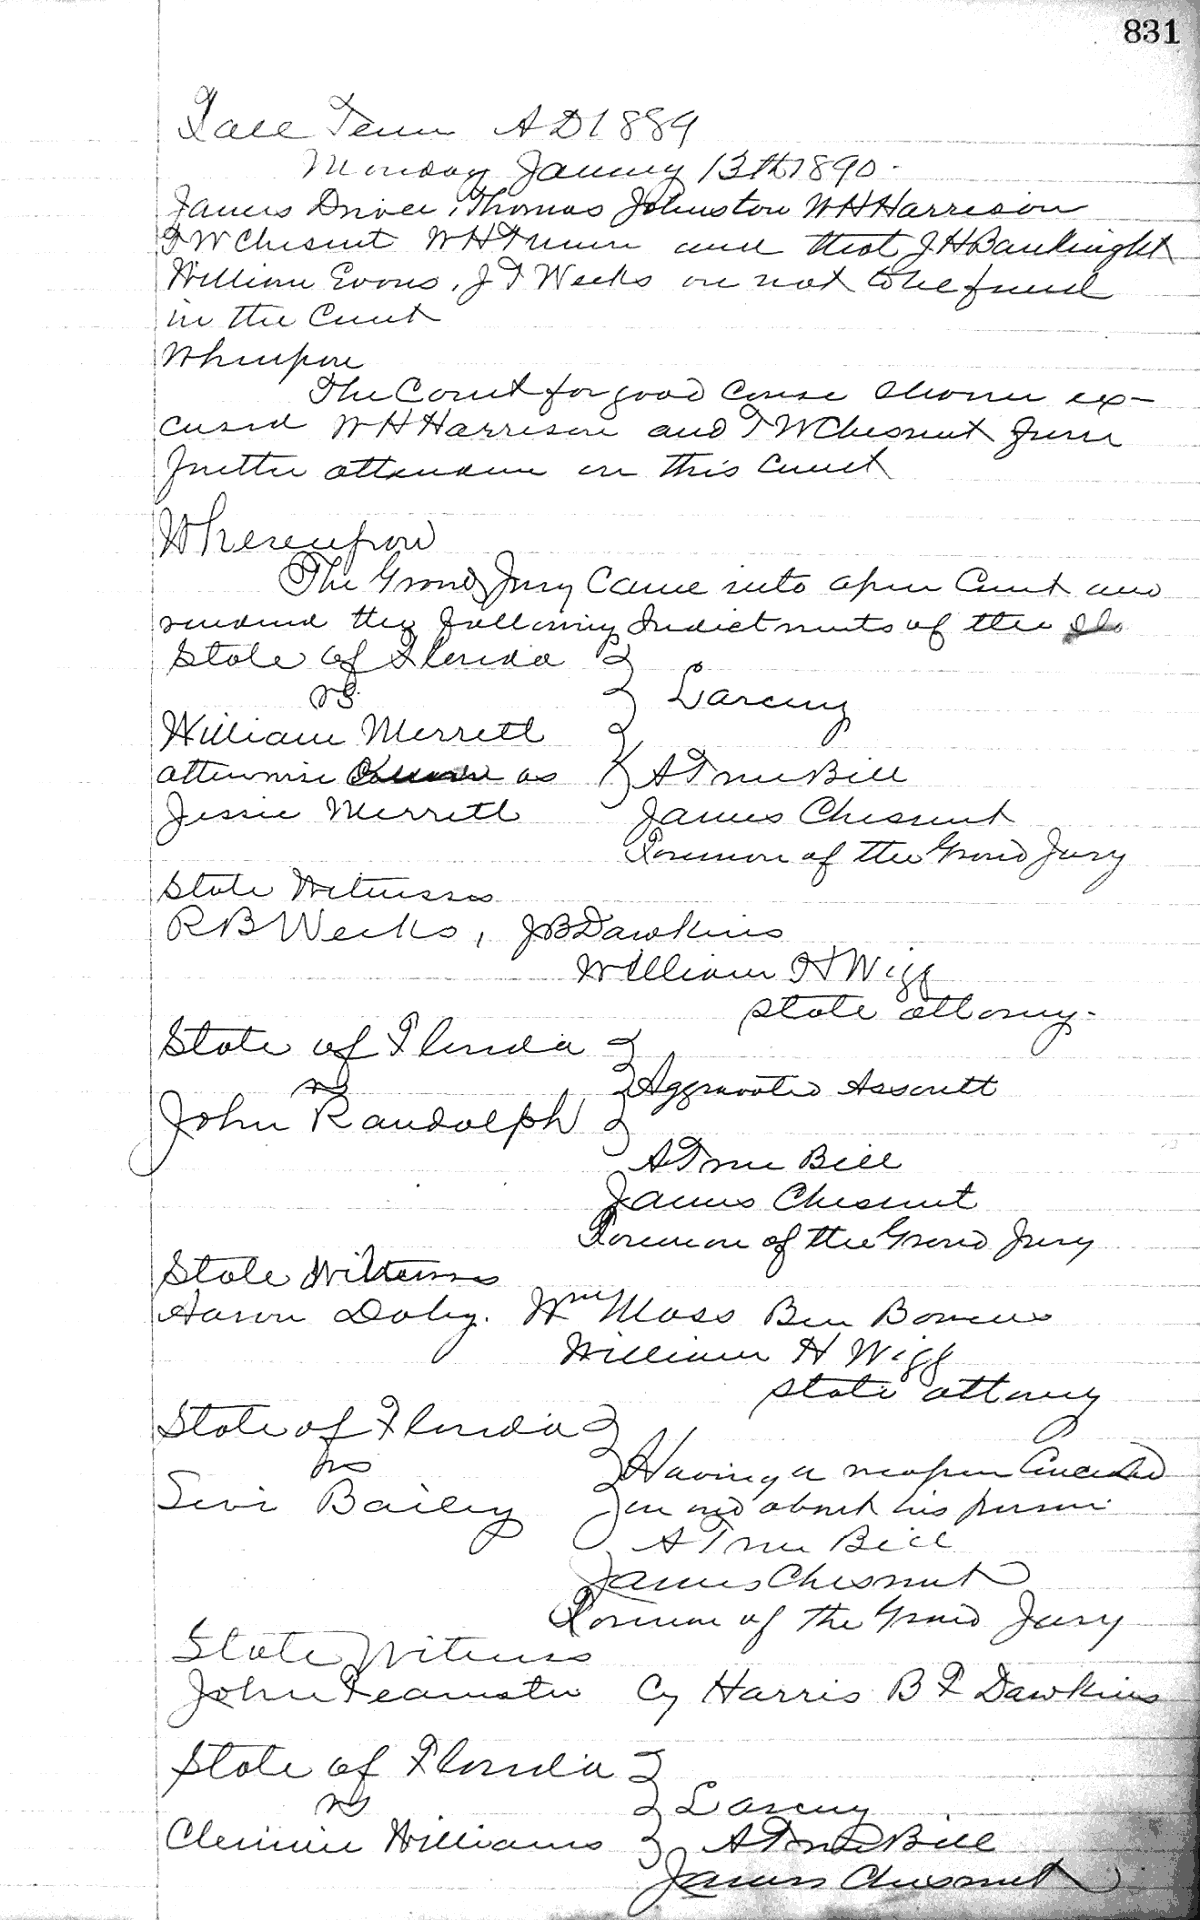 831
Fall Term AD 1889
Monday January 13th 1890.
James Driver, Thomas Johnston W H Harrison
T W Chesnut W H and that J H Bauknight
William Evans, J T Weeks are not to be found
in the Court
Whereupon
The Court for good cause shown ex-
cused W H Harrison and T W Chesnut from
further attendance on this Court
Whereupon
The Grand Jury Came into open Court and
rendered the following Indictments of the
State of Florida
vs
Larceny
William Merrett
otherwise as
A True Bill
Jessie Merrett
James Chesnut
Foreman of the Grand Jury
State Witnesses
R B Weeks, J B Dawkins
William H Wigg
State attorney.
State of Florida
vs
Aggravated Assault
John Randolph
A True Bill
James Chesnut
Foreman of the Grand Jury
State Witnesses
Aaron Wm Moss Ben
William H Wigg
State attorney
State of Florida
vs
Having a weapon Concealed
Bailey
on and about his person
A True Bill
James Chesnut
Foreman of the Grand Jury
State Witness
John Feamster Cy Harris B F Dawkins
State of Florida
vs
Larceny
Williams
A True Bill
James Chesnut